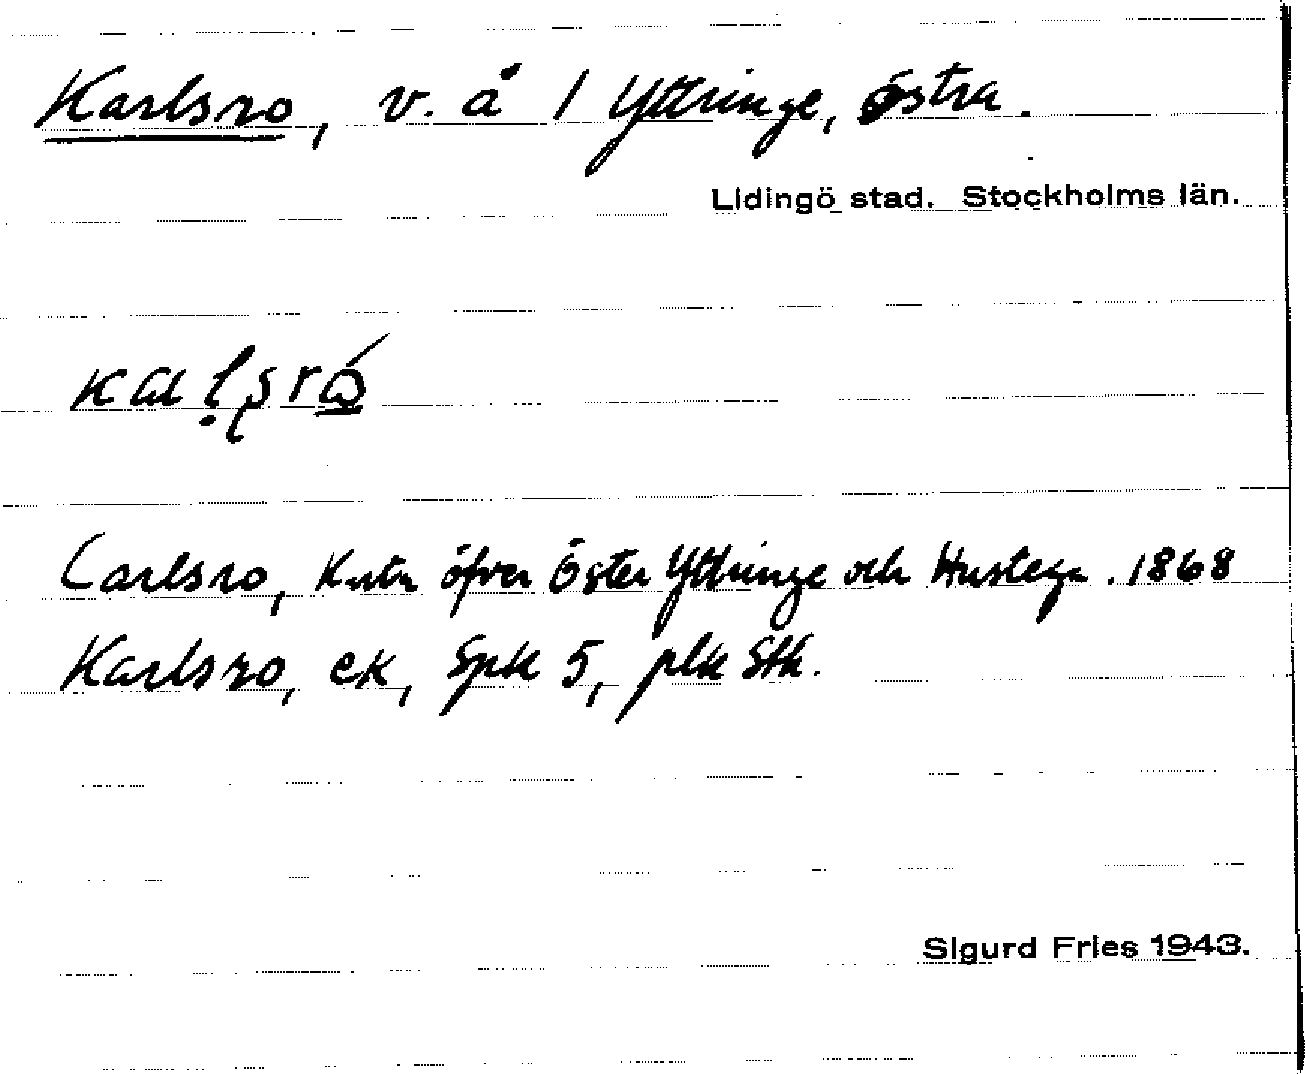 Karlsro, v. å 1 Yttringe, östra.
Lidingö stad. Stockholms län.
Carlsro, Karta öfver Öster Yttringe och Hustega. 1868
Karlsro, ek, Spk 5, plk Sthl.
Sigurd Fries 1943.